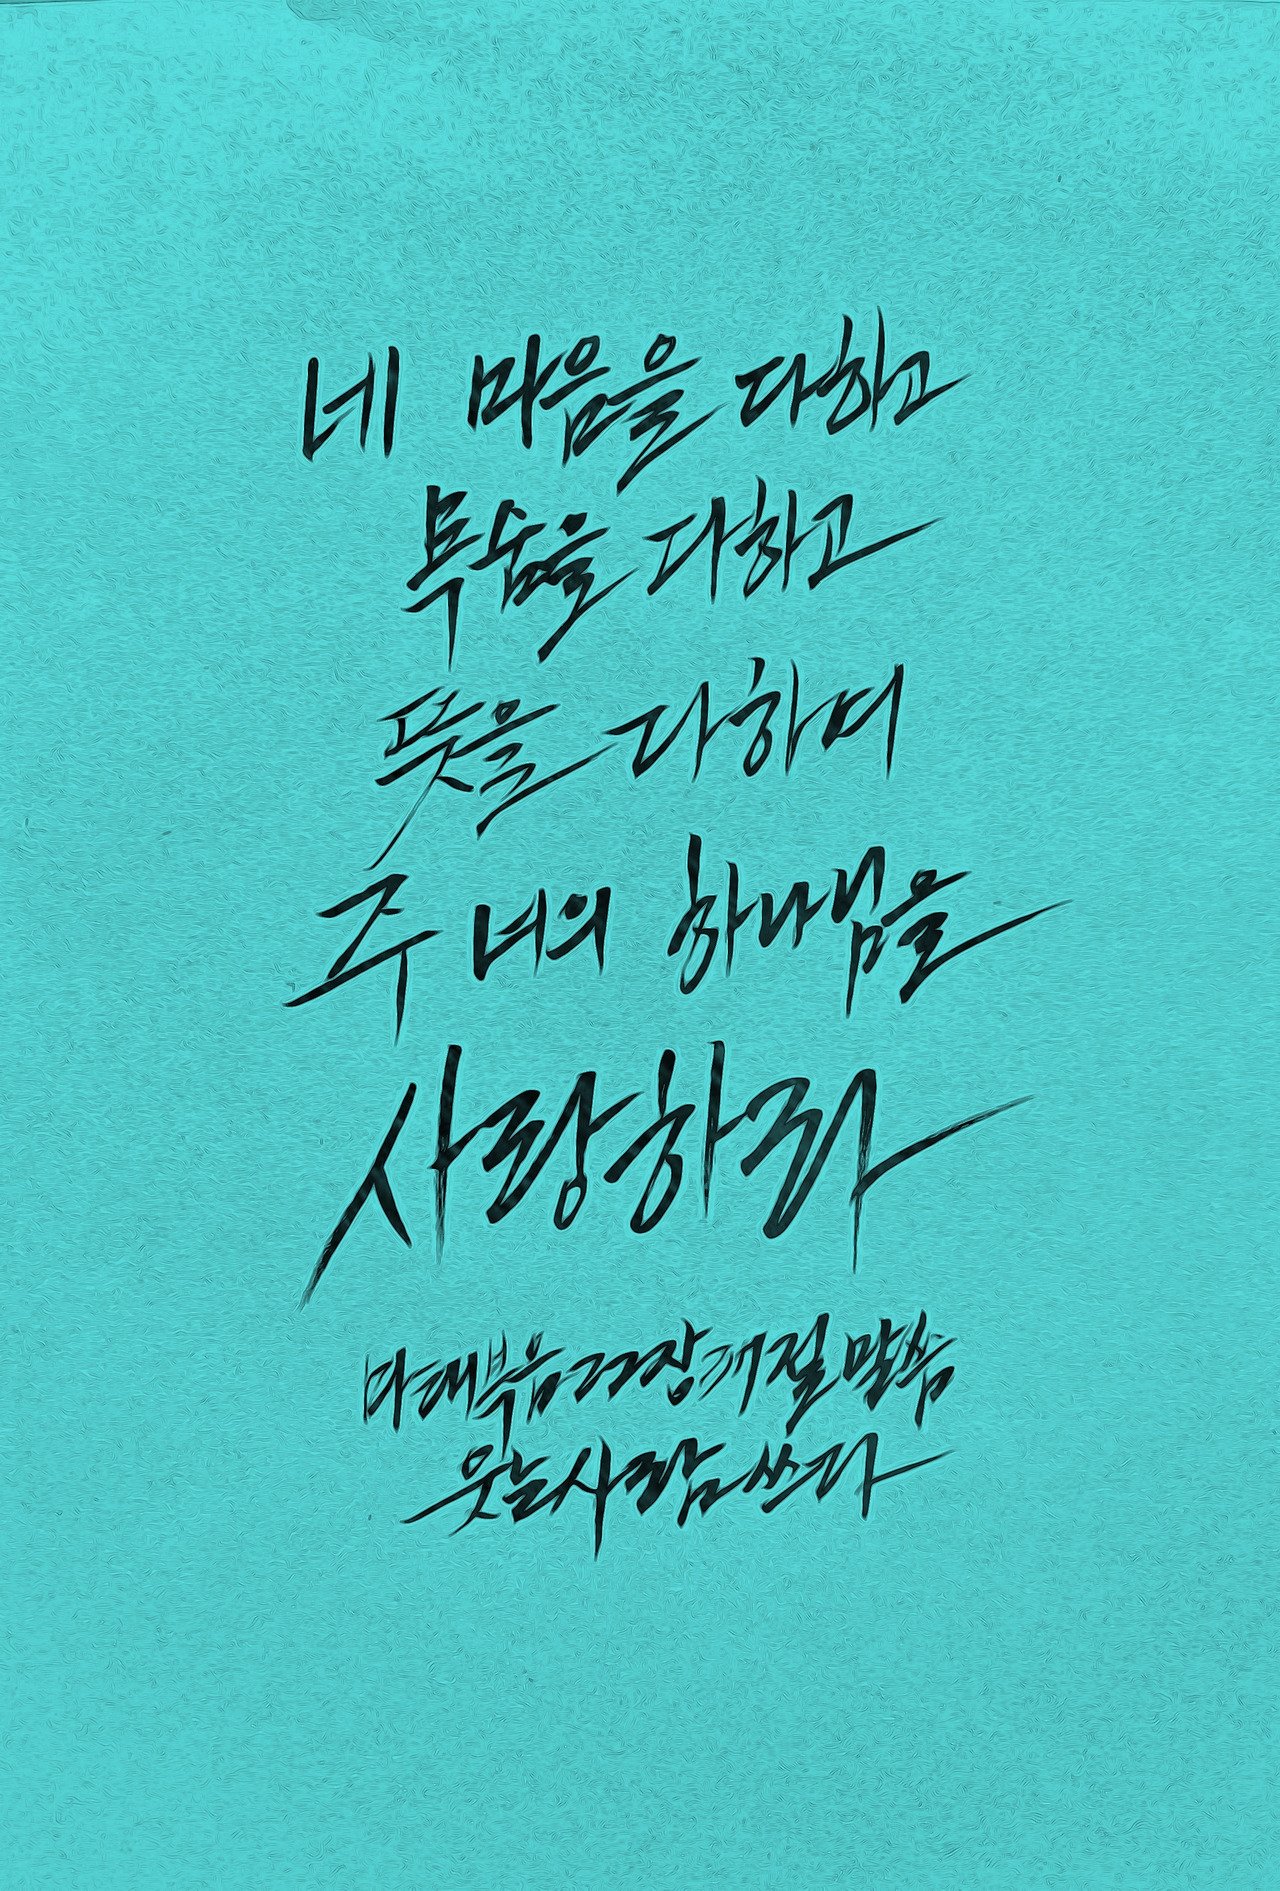 네 마음을 다하고
목숨을 다하고
뜻을 다하여
주 너의 하나님을
사랑하라
마태복음22장37절말씀
웃는사람쓰다